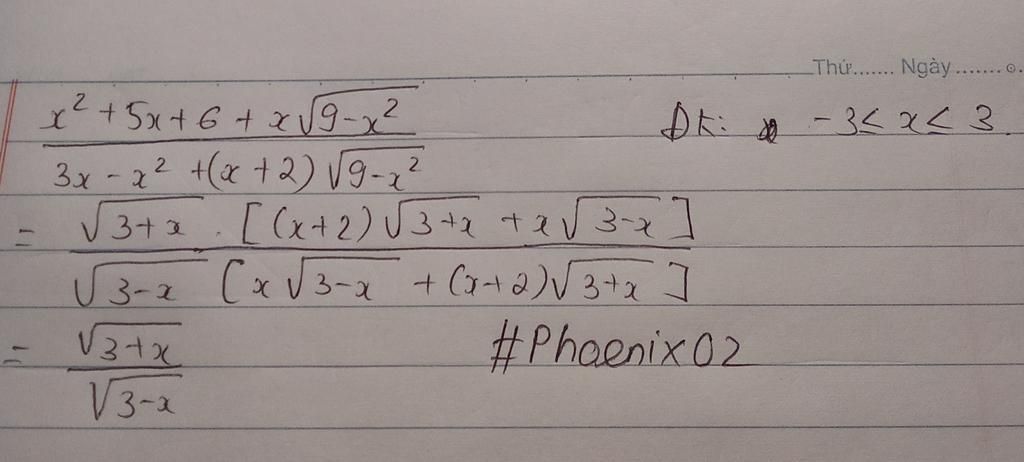 Thứ....... Ngày........
\frac{x^2+5x+6+x\sqrt{9-x^2}}{3x-x^2+(x+2)\sqrt{9-x^2}} ĐK: -3≤x≤3.
= \frac{\sqrt{3+x}.[(x+2)\sqrt{3+x}+x\sqrt{3-x}]}{\sqrt{3-x}[x\sqrt{3-x}+(x+2)\sqrt{3+x}]}
= \frac{\sqrt{3+x}}{\sqrt{3-x}} #Phoenix02